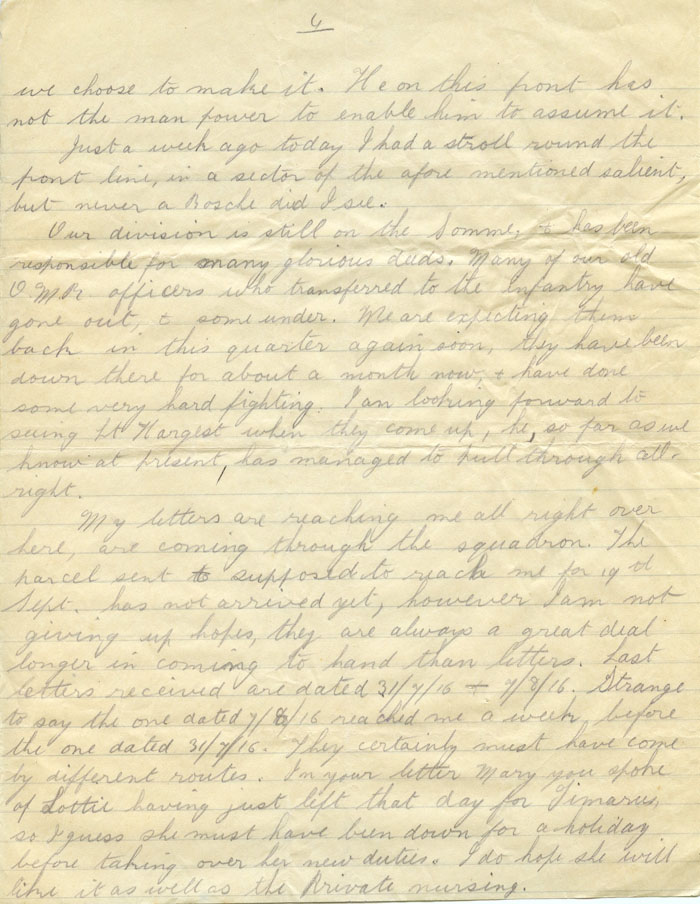 6
we choose to make it. He on this front has
not the man power to enable him to assume it.
Just a week ago today I had a stroll round the
front line, in a sector of the afore mentioned salient,
but never a Bosche did I see.
Our division is still on the Somme, & has been
responsible for many glorious deeds. Many of our old
O M R officers who transferred to the Infantry have
gone out, & some under. We are expecting them
back in this quarter again soon, they have been
down there for about a month now, & have done
some very hard fighting. I am looking forward to
seeing Lt Hargest when they come up, he, so far as we
know at present, has managed to pull through all-
right.
My letters are reaching me all right over
here, are coming through the squadron. The
parcel sent to supposed to reach me for
Sept. has not arrived yet, however I am not
giving up hopes, they are always a great deal
longer in coming to hand than letters. Last
letters received are dated 31/7/16 + 7/8/16. Strange
to say the one dated 7/8/16 reached me a week before
the one dated 31/7/16. They certainly must have come
by different routes. In your letter Mary you spoke
of Lottie having just left that day for Timaru,
so I guess she must have been down for a holiday
before taking over her new duties. I do hope she will
like it as well as the Private nursing.